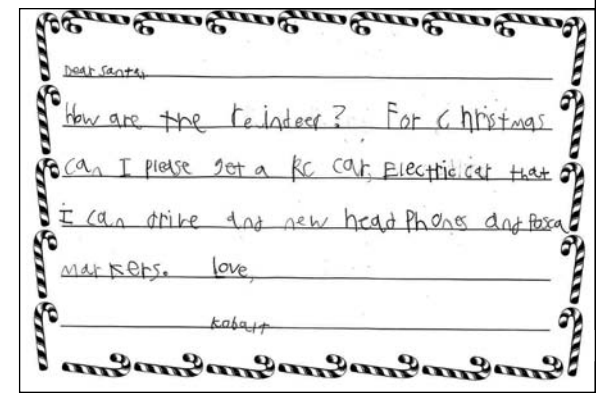 Dear Santa,
How are the reindeer? For Christmas
can I please get a RC car, Electric car that
I can drive and new head Phones and Posca
markers. love,
kobalt